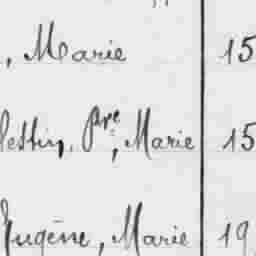 , Marie 15
lestin, Pre, Marie 15
Eugène, Marie 19